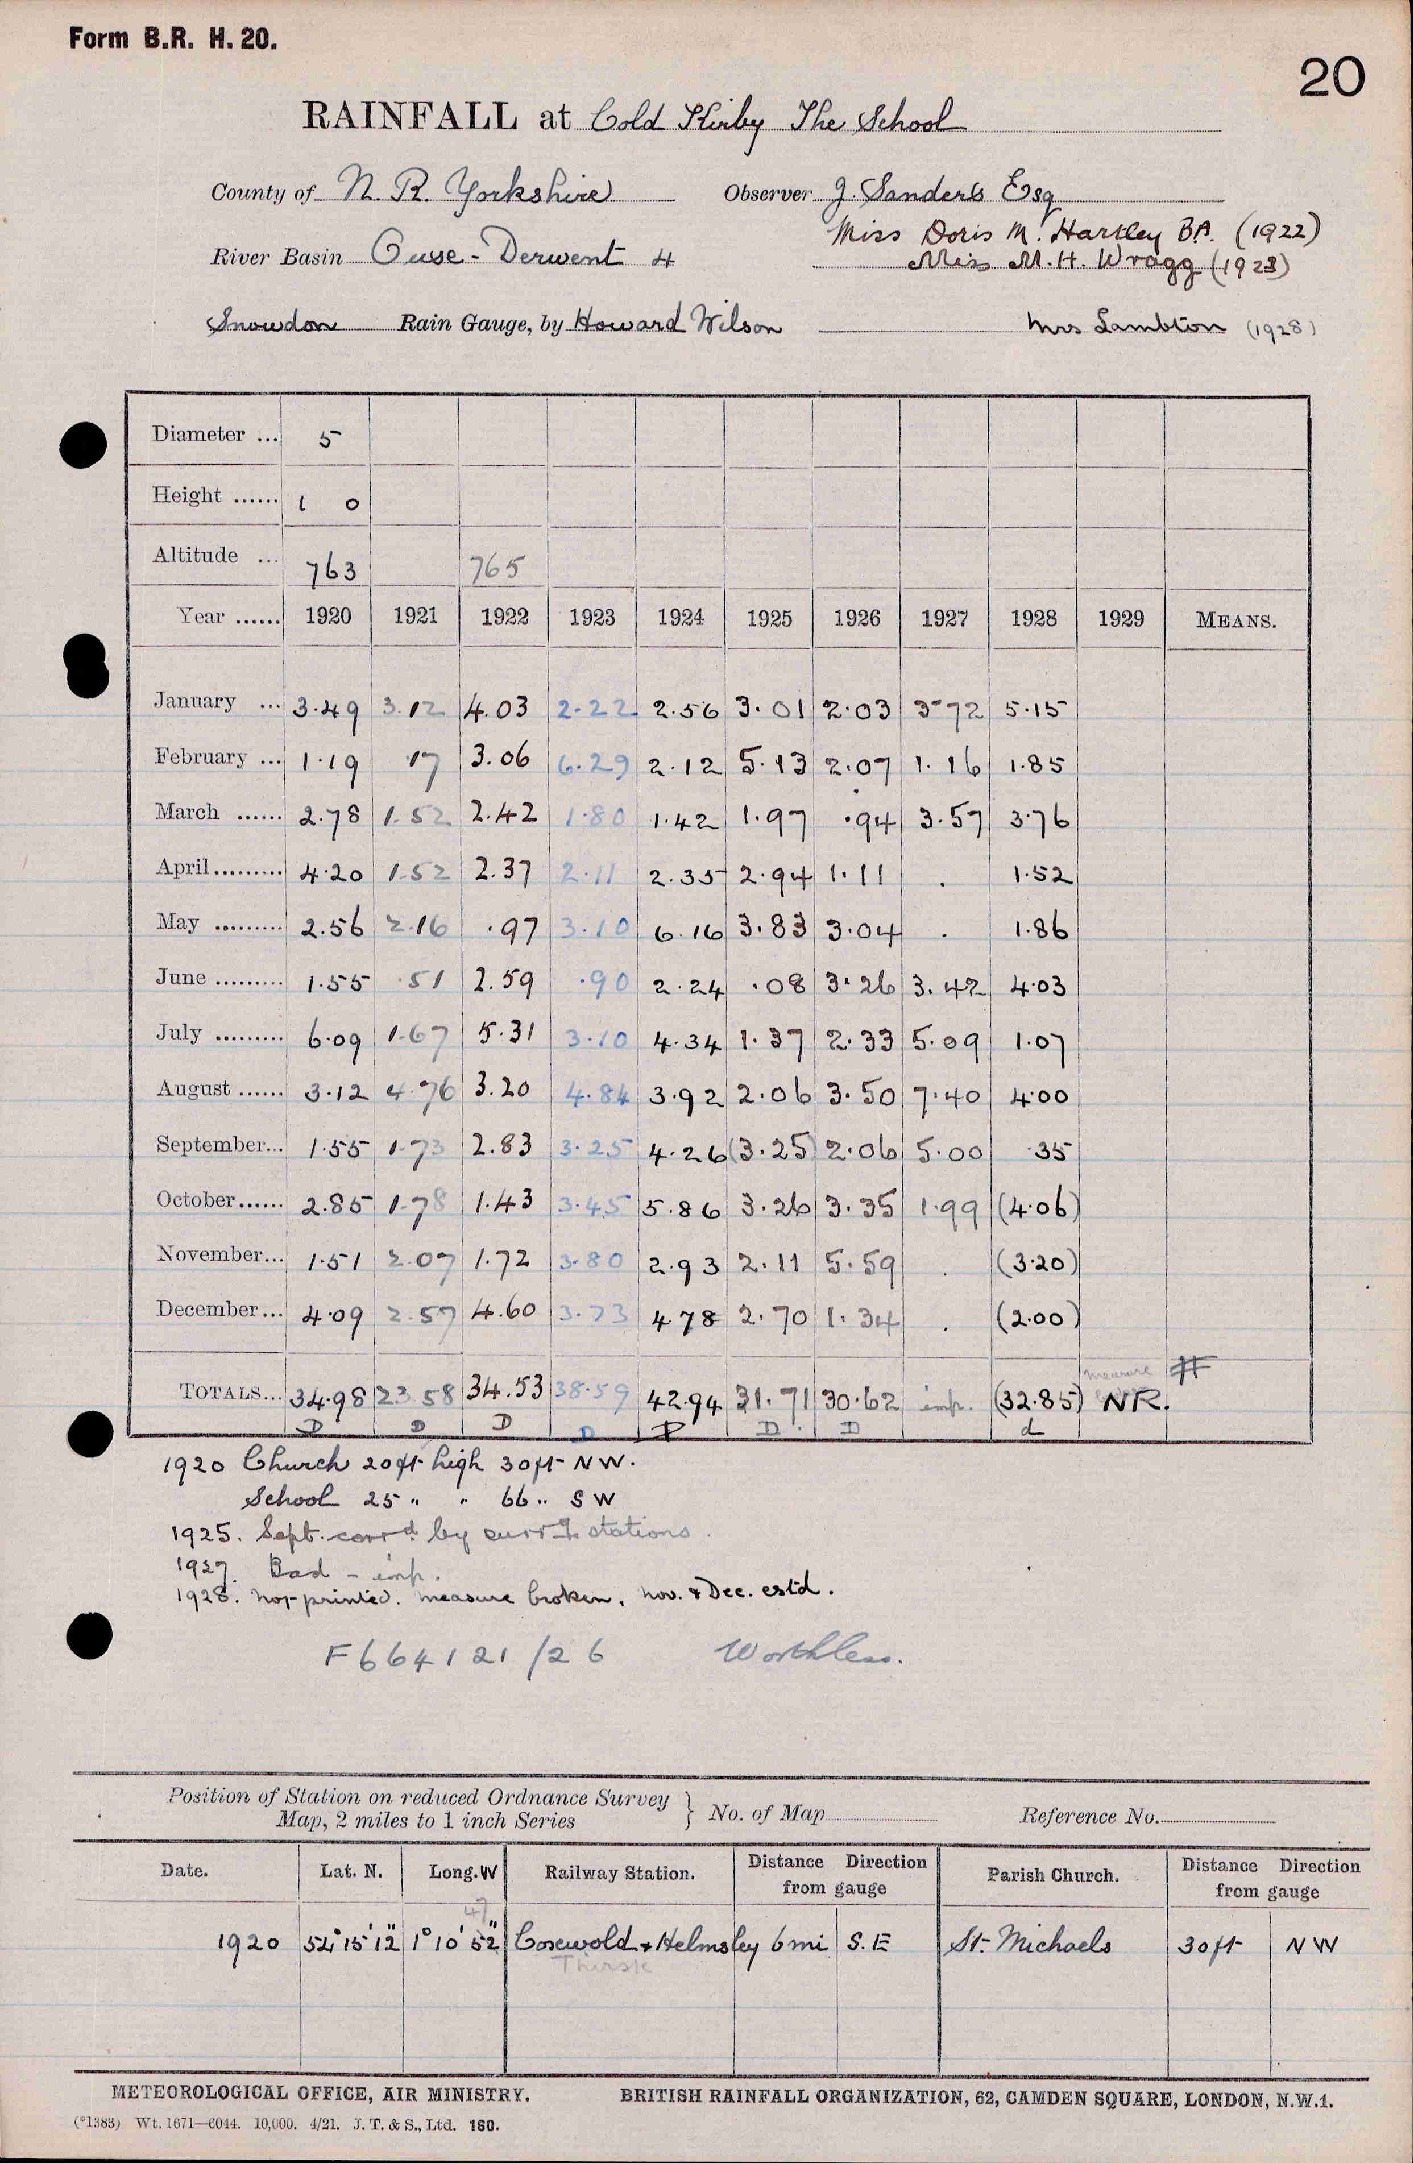 Form B.R. H. 20.
20
RAINFALL at Cold Kirby The School
County of N. R. Yorkshire Observer J. Sanders Esq
Miss Doris M. Hartley B.A. (1922)
River Basin Ouse - Derwent 4 Miss M. H. Wragg (1923)
Snowdon Rain Gauge, by Howard Wilson Mrs Lambton (1928)
Diameter ... 5
Height ...... 1 0
Altitude ... 763 765
Year ...... 1920 1921 1922 1923 1924 1925 1926 1927 1928 1929 MEANS.
January ... 3.49 3.12 4.03 2.22 2.56 3.01 2.03 3.72 5.15
February ... 1.19 .17 3.06 6.29 2.12 5.13 2.07 1.16 1.85
March ...... 2.78 1.52 2.42 1.80 1.42 1.97 .94 3.57 3.76
April ......... 4.20 1.52 2.37 2.11 2.35 2.94 1.11 . 1.52
May ......... 2.56 2.16 .97 3.10 6.16 3.83 3.04 . 1.86
June ......... 1.55 .51 2.59 .90 2.24 .08 3.26 3.42 4.03
July ......... 6.09 1.67 5.31 3.10 4.34 1.37 2.33 5.09 1.07
August ...... 3.12 4.76 3.20 4.84 3.92 2.06 3.50 7.40 4.00
September... 1.55 1.73 2.83 3.25 4.26 (3.25) 2.06 5.00 .35
October ...... 2.85 1.78 1.43 3.45 5.86 3.26 3.35 1.99 (4.06)
November... 1.51 2.07 1.72 3.80 2.93 2.11 5.59 . (3.20)
December... 4.09 2.57 4.60 3.73 4.78 2.70 1.34 . (2.00)
measure
TOTALS... 34.98 23.58 34.53 38.59 42.94 31.71 30.62 imp. (32.85) NR. #
D D D D D D D d
1920 Church 20ft high 30ft NW.
School 25 " " 66 " SW
1925. Sept. corrd. by surrg. stations.
1927. Bad - imp.
1928. Not printed. Measure broken. Nov. & Dec. estd.
F664121/26 Worthless.
Position of Station on reduced Ordnance Survey
Map, 2 miles to 1 inch Series } No. of Map Reference No.
Date. Lat. N. Long. W Railway Station. Distance Direction from gauge Parish Church. Distance Direction from gauge
47
1920 54° 15' 12" 1° 10' 52" Coxwold & Helmsley 6 mi S.E St. Michaels 30ft NW
Thirsk
METEOROLOGICAL OFFICE, AIR MINISTRY. BRITISH RAINFALL ORGANIZATION, 62, CAMDEN SQUARE, LONDON, N.W.1.
(*1383) Wt. 1671—6044. 10,000. 4/21. J. T. & S., Ltd. 160.